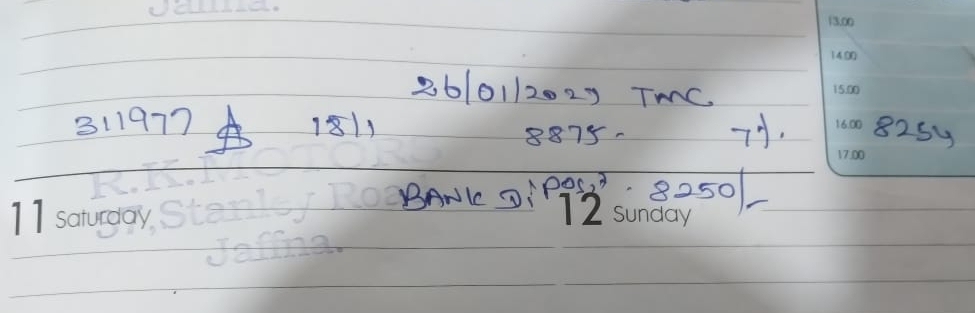 Jaffna.
13.00
14.00
26/01/2029 TMC
15.00
311977 A 18/1 8875- 7%.
16.00 8254
17.00
R.K.MOTORS
BANK Diposit. 8250/-
11 Saturday 12 Sunday
37, Stanley Road
Jaffna.